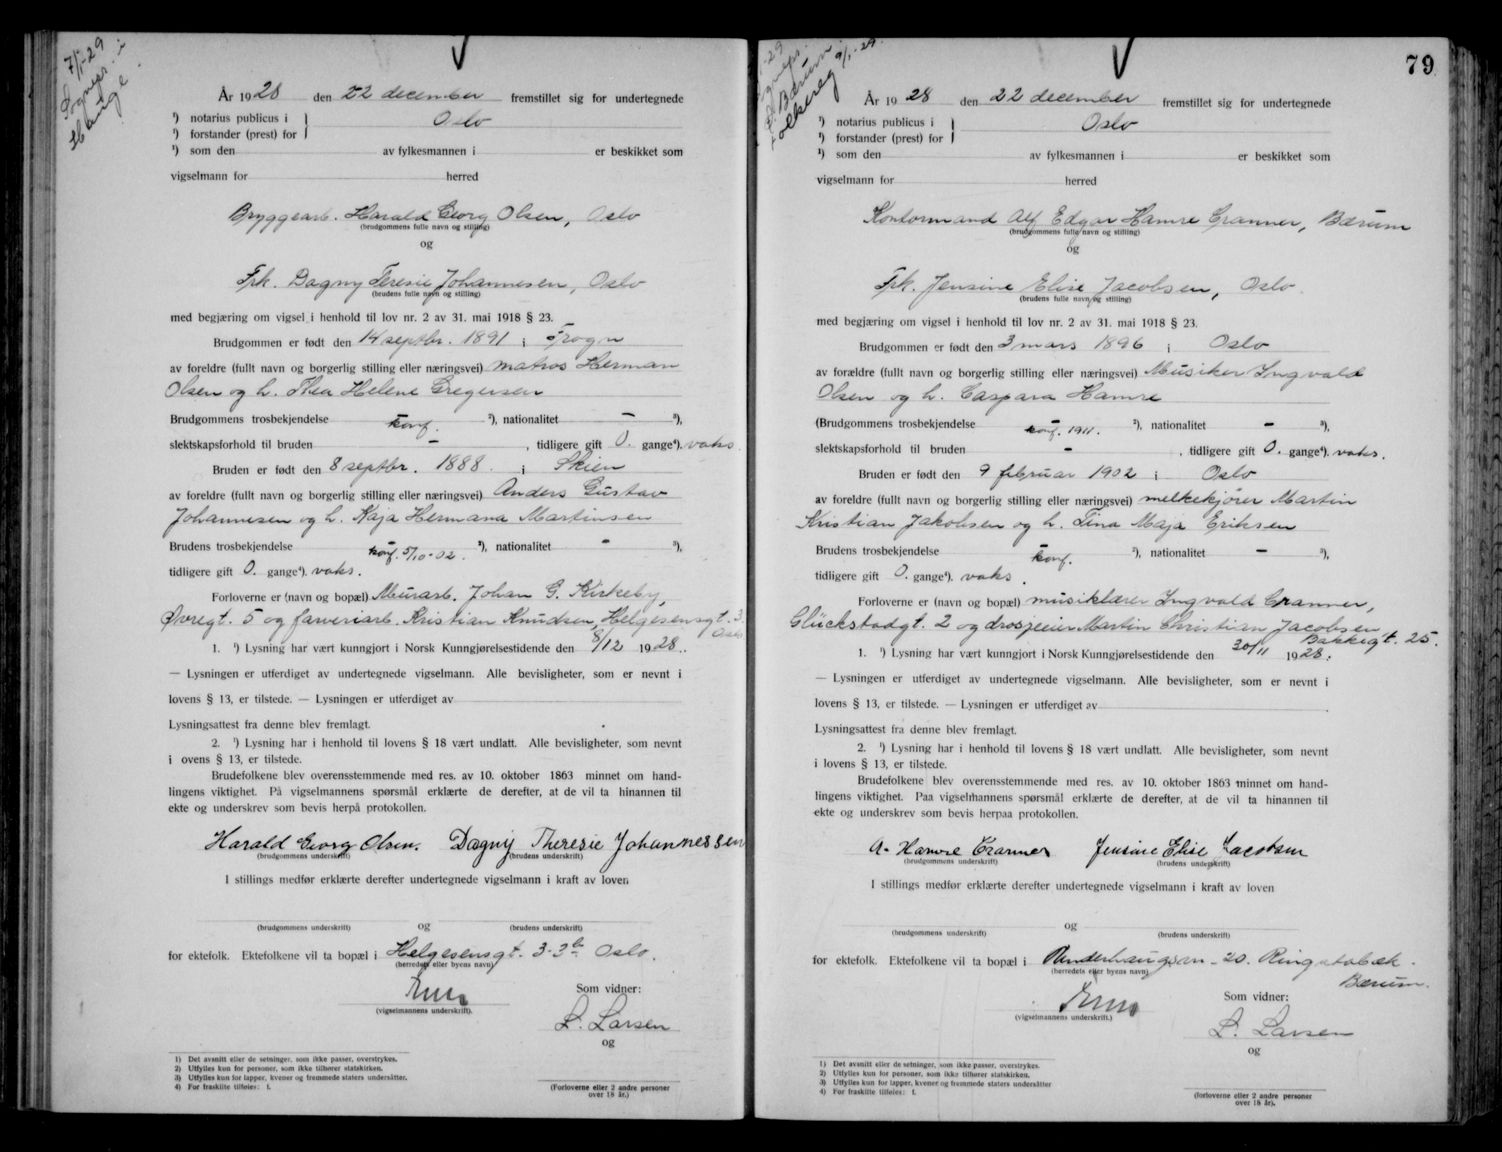 7/1-29
Sognepr. i
Hauge.
År 1928 den 22 december fremstillet sig for undertegnede
¹) notarius publicus i } Oslo
¹) forstander (prest) for
¹) som den av fylkesmannen i er beskikket som
vigselmann for herred
Bryggearb. Harald Georg Olsen, Oslo
(brudgommens fulle navn og stilling)
og
Frk. Dagny Teresie Johannesen, Oslo
(brudens fulle navn og stilling)
med begjæring om vigsel i henhold til lov nr. 2 av 31. mai 1918 § 23.
Brudgommen er født den 14 septbr. 1891 i Frogn
av foreldre (fullt navn og borgerlig stilling eller næringsvei) matros Herman
Olsen og h. Thea Helene Gregersen
Brudgommens trosbekjendelse konf. ²), nationalitet - ³),
slektskapsforhold til bruden - , tidligere gift 0. gange⁴). vaks.
Bruden er født den 8 septbr. 1888. i Skien
av foreldre (fullt navn og borgerlig stilling eller næringsvei) Anders Gustav
Johannesen og h. Kaja Hermana Martinsen
Brudens trosbekjendelse konf. 5/10-02. ²), nationalitet - ³),
tidligere gift 0. gange⁴). vaks.
Forloverne er (navn og bopæl) Murarb. Johan G. Kirkeby,
Øvregt. 5 og farveriarb. Kristian Knudsen, Helgesensgt. 3.
Oslo
1. ¹) Lysning har vært kunngjort i Norsk Kunngjørelsestidende den 8/12 1928.
— Lysningen er utferdiget av undertegnede vigselmann. Alle bevisligheter, som er nevnt i
lovens § 13, er tilstede. — Lysningen er utferdiget av
Lysningsattest fra denne blev fremlagt.
2. ¹) Lysning har i henhold til lovens § 18 vært undlatt. Alle bevisligheter, som nevnt
i ovens § 13, er tilstede.
Brudefolkene blev overensstemmende med res. av 10. oktober 1863 minnet om hand-
lingens viktighet. På vigselmannens spørsmål erklærte de derefter, at de vil ta hinannen til
ekte og underskrev som bevis herpå protokollen.
Harald Georg Olsen. Dagny Theresie Johannessen
(brudgommens underskrift) (brudens underskrift)
I stillings medfør erklærte derefter undertegnede vigselmann i kraft av loven
og
(brudgommens underskrift) (brudens underskrift)
for ektefolk. Ektefolkene vil ta bopæl i Helgesensgt. 3-3b Oslo.
(herredets eller byens navn)
(vigselmannens underskrift).
Som vidner:
L. Larsen
og
(Forloverne eller 2 andre personer
over 18 år.)
1) Det avsnitt eller de setninger, som ikke passer, overstrykes.
2) Utfylles kun for personer, som ikke tilhører statskirken.
3) Utfylles kun for lapper, kvener og fremmede staters undersåtter.
4) For fraskilte tilføies: f.
79
År 1928 den 22 december fremstillet sig for undertegnede
¹) notarius publicus i } Oslo
¹) forstander (prest) for
¹) som den av fylkesmannen i er beskikket som
vigselmann for herred
Kontormand Alf Edgar Hamre Cranner, Bærum
(brudgommens fulle navn og stilling)
og
Frk. Jensine Elise Jacobsen, Oslo.
(brudens fulle navn og stilling)
med begjæring om vigsel i henhold til lov nr. 2 av 31. mai 1918 § 23.
Brudgommen er født den 3 mars 1896 i Oslo
av forældre (fullt navn og borgerlig stilling eller næringsvei) Musiker Ingvald
Olsen og h. Caspara Hamre
(Brudgommens trosbekjendelse konf. 1911. ²), nationalitet - ³),
slektskapsforhold til bruden - , tidligere gift 0. gange⁴). vaks.
Bruden er født den 9 februar 1902 i Oslo
av foreldre (fullt navn og borgerlig stilling eller næringsvei) melkekjører Martin
Kristian Jakobsen og h. Tina Maja Eriksen
Brudens trosbekjendelse konf. ²), nationalitet - ³),
tidligere gift 0. gange⁴). vaks.
Forloverne er (navn og bopæl) musiklærer Ingvald Cranner,
Glückstadgt. 2 og drosjeeier Martin Christian Jacobsen
Bakkegt. 25.
1. ¹) Lysning har vært kunngjort i Norsk Kunngjørelsestidende den 30/11 1928.
— Lysningen er utferdiget av undertegnede vigselmann. Alle bevisligheter, som er nevnt i
lovens § 13, er tilstede. — Lysningen er utferdiget av
Lysningsattest fra denne blev fremlagt.
2. ¹) Lysning har i henhold til lovens § 18 vært undlatt. Alle bevisligheter, som nevnt
i lovens § 13, er tilstede.
Brudefolkene blev overensstemmende med res. av 10. oktober 1863 minnet om hand-
lingens viktighet. Paa vigselmannens spørsmål erklærte de derefter, at de vil ta hinannen til
ekte og underskrev som bevis herpaa protokollen.
A. Hamre Cranner Jensine Elise Jacobsen
(brudgommens underskrift) (brudens underskrift)
I stillings medfør erklærte derefter undertegnede vigselmann i kraft av loven
og
(brudgommens underskrift) (brudens underskrift)
for ektefolk. Ektefolkene vil ta bopæl i 20. Ringstabæk.
(herredets eller byens navn)
Bærum.
(vigselmannens underskrift.)
Som vidner:
L. Larsen
og
(forloverne eller 2 andre personer
over 18 år).
1) Det avsnitt eller de setninger, som ikke passer, overstrykes.
2) Utfylles kun for personer, som ikke tilhører statskirken.
3) Utfylles kun for lapper, kvener og fremmede staters undersåtter
4) For fraskilte tilføies: f.